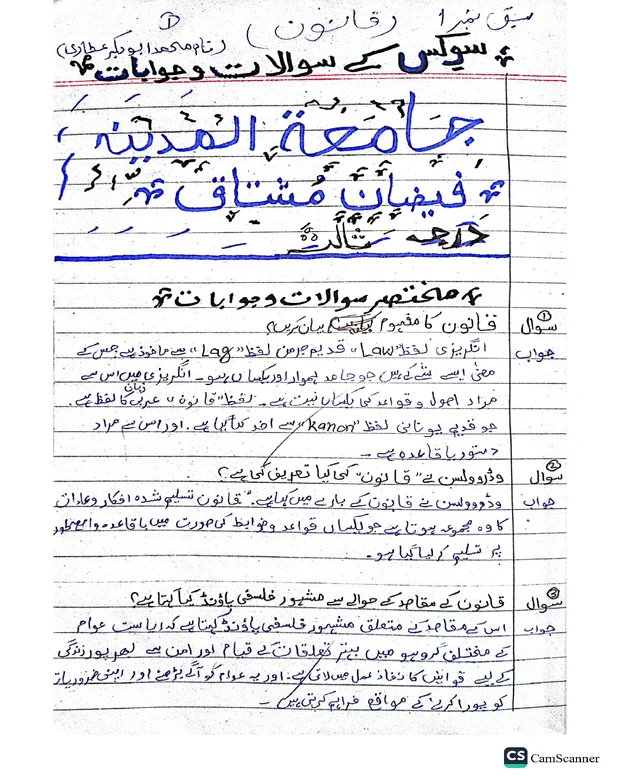 سبق نمبر 1 (قانون) 1
(نام محمد ابوبکر عطاری)
سوکس کے سوالات وجوابات
جامعة المدینه
فیضان مُشتاق
درجہ ثالثہ
مختصر سوالات وجوابات
سوال 1 قانون کا مفہوم بیان کریں؟
جواب انگریزی لفظ "Law" قدیم جرمن لفظ "Lag" سے ماخوذ ہے جس کے
معنی ایسے شے کے ہیں جو جامد ہموار اور یکساں ہو۔ انگریزی زبان میں اس سے
مراد اصول و قواعد کی یکسانیت ہے۔ لفظ "قانون" عربی کا لفظ ہے۔
جو قدیم یونانی لفظ "kanon" سے اخذ کیا گیا ہے۔ اور اس سے مراد
دستور یا قاعدہ ہے۔
سوال 2 وڈروولسن نے "قانون" کی کیا تعریف کی ہے؟
جواب وڈروولسن نے قانون کے بارے میں کہا ہے۔ "قانون تسلیم شدہ افکار وعادات
کا وہ مجموعہ ہوتا ہے جو یکساں قواعد وضوابط کی صورت میں باقاعدہ واضح طور
پر تسلیم کر لیا گیا ہو۔
سوال 3 قانون کے مقاصد کے حوالے سے مشہور فلسفی پاؤنڈ کیا کہتا ہے؟
جواب اس کے مقاصد کے متعلق مشہور فلسفی پاؤنڈ کہتا ہے کہ ریاست عوام
کے مختلف گروہو میں بہتر تعلقات کے قیام اور امن سے بھرپور زندگی
کے لیے قوانین کا نفاذ عمل میں لاتی ہے۔ اور یہ عوام کو آگے بڑھنے اور اپنی ضروریات
کو پورا کرنے کے مواقع فراہم کرتی ہیں۔
CS CamScanner